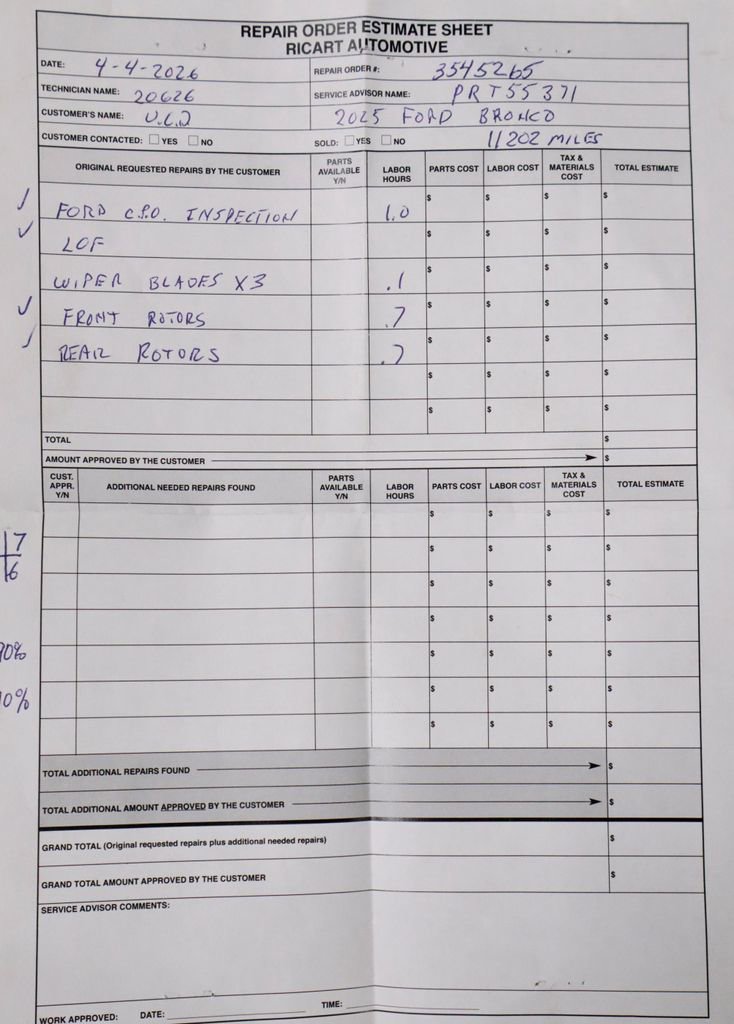 REPAIR ORDER ESTIMATE SHEET
RICART AUTOMOTIVE
DATE: 4-4-2026 REPAIR ORDER #: 3545265
TECHNICIAN NAME: 20626 SERVICE ADVISOR NAME: PRT55371
CUSTOMER'S NAME: U.C.D 2025 FORD BRONCO
CUSTOMER CONTACTED: ☐ YES ☐ NO SOLD: ☐ YES ☐ NO 11202 MILES
ORIGINAL REQUESTED REPAIRS BY THE CUSTOMER PARTS AVAILABLE Y/N LABOR HOURS PARTS COST LABOR COST TAX & MATERIALS COST TOTAL ESTIMATE
✓ FORD C.P.O. INSPECTION 1.0 $ $ $ $
✓ LOF $ $ $ $
WIPER BLADES X3 .1 $ $ $ $
✓ FRONT ROTORS .7 $ $ $ $
✓ REAR ROTORS .7 $ $ $ $
$ $ $ $
$ $ $ $
TOTAL $
AMOUNT APPROVED BY THE CUSTOMER $
CUST. APPR. Y/N ADDITIONAL NEEDED REPAIRS FOUND PARTS AVAILABLE Y/N LABOR HOURS PARTS COST LABOR COST TAX & MATERIALS COST TOTAL ESTIMATE
$ $ $ $
17 $ $ $ $
6 $ $ $ $
$ $ $ $
90% $ $ $ $
0% $ $ $ $
$ $ $ $
TOTAL ADDITIONAL REPAIRS FOUND $
TOTAL ADDITIONAL AMOUNT APPROVED BY THE CUSTOMER $
GRAND TOTAL (Original requested repairs plus additional needed repairs) $
GRAND TOTAL AMOUNT APPROVED BY THE CUSTOMER $
SERVICE ADVISOR COMMENTS:
WORK APPROVED: DATE: TIME: